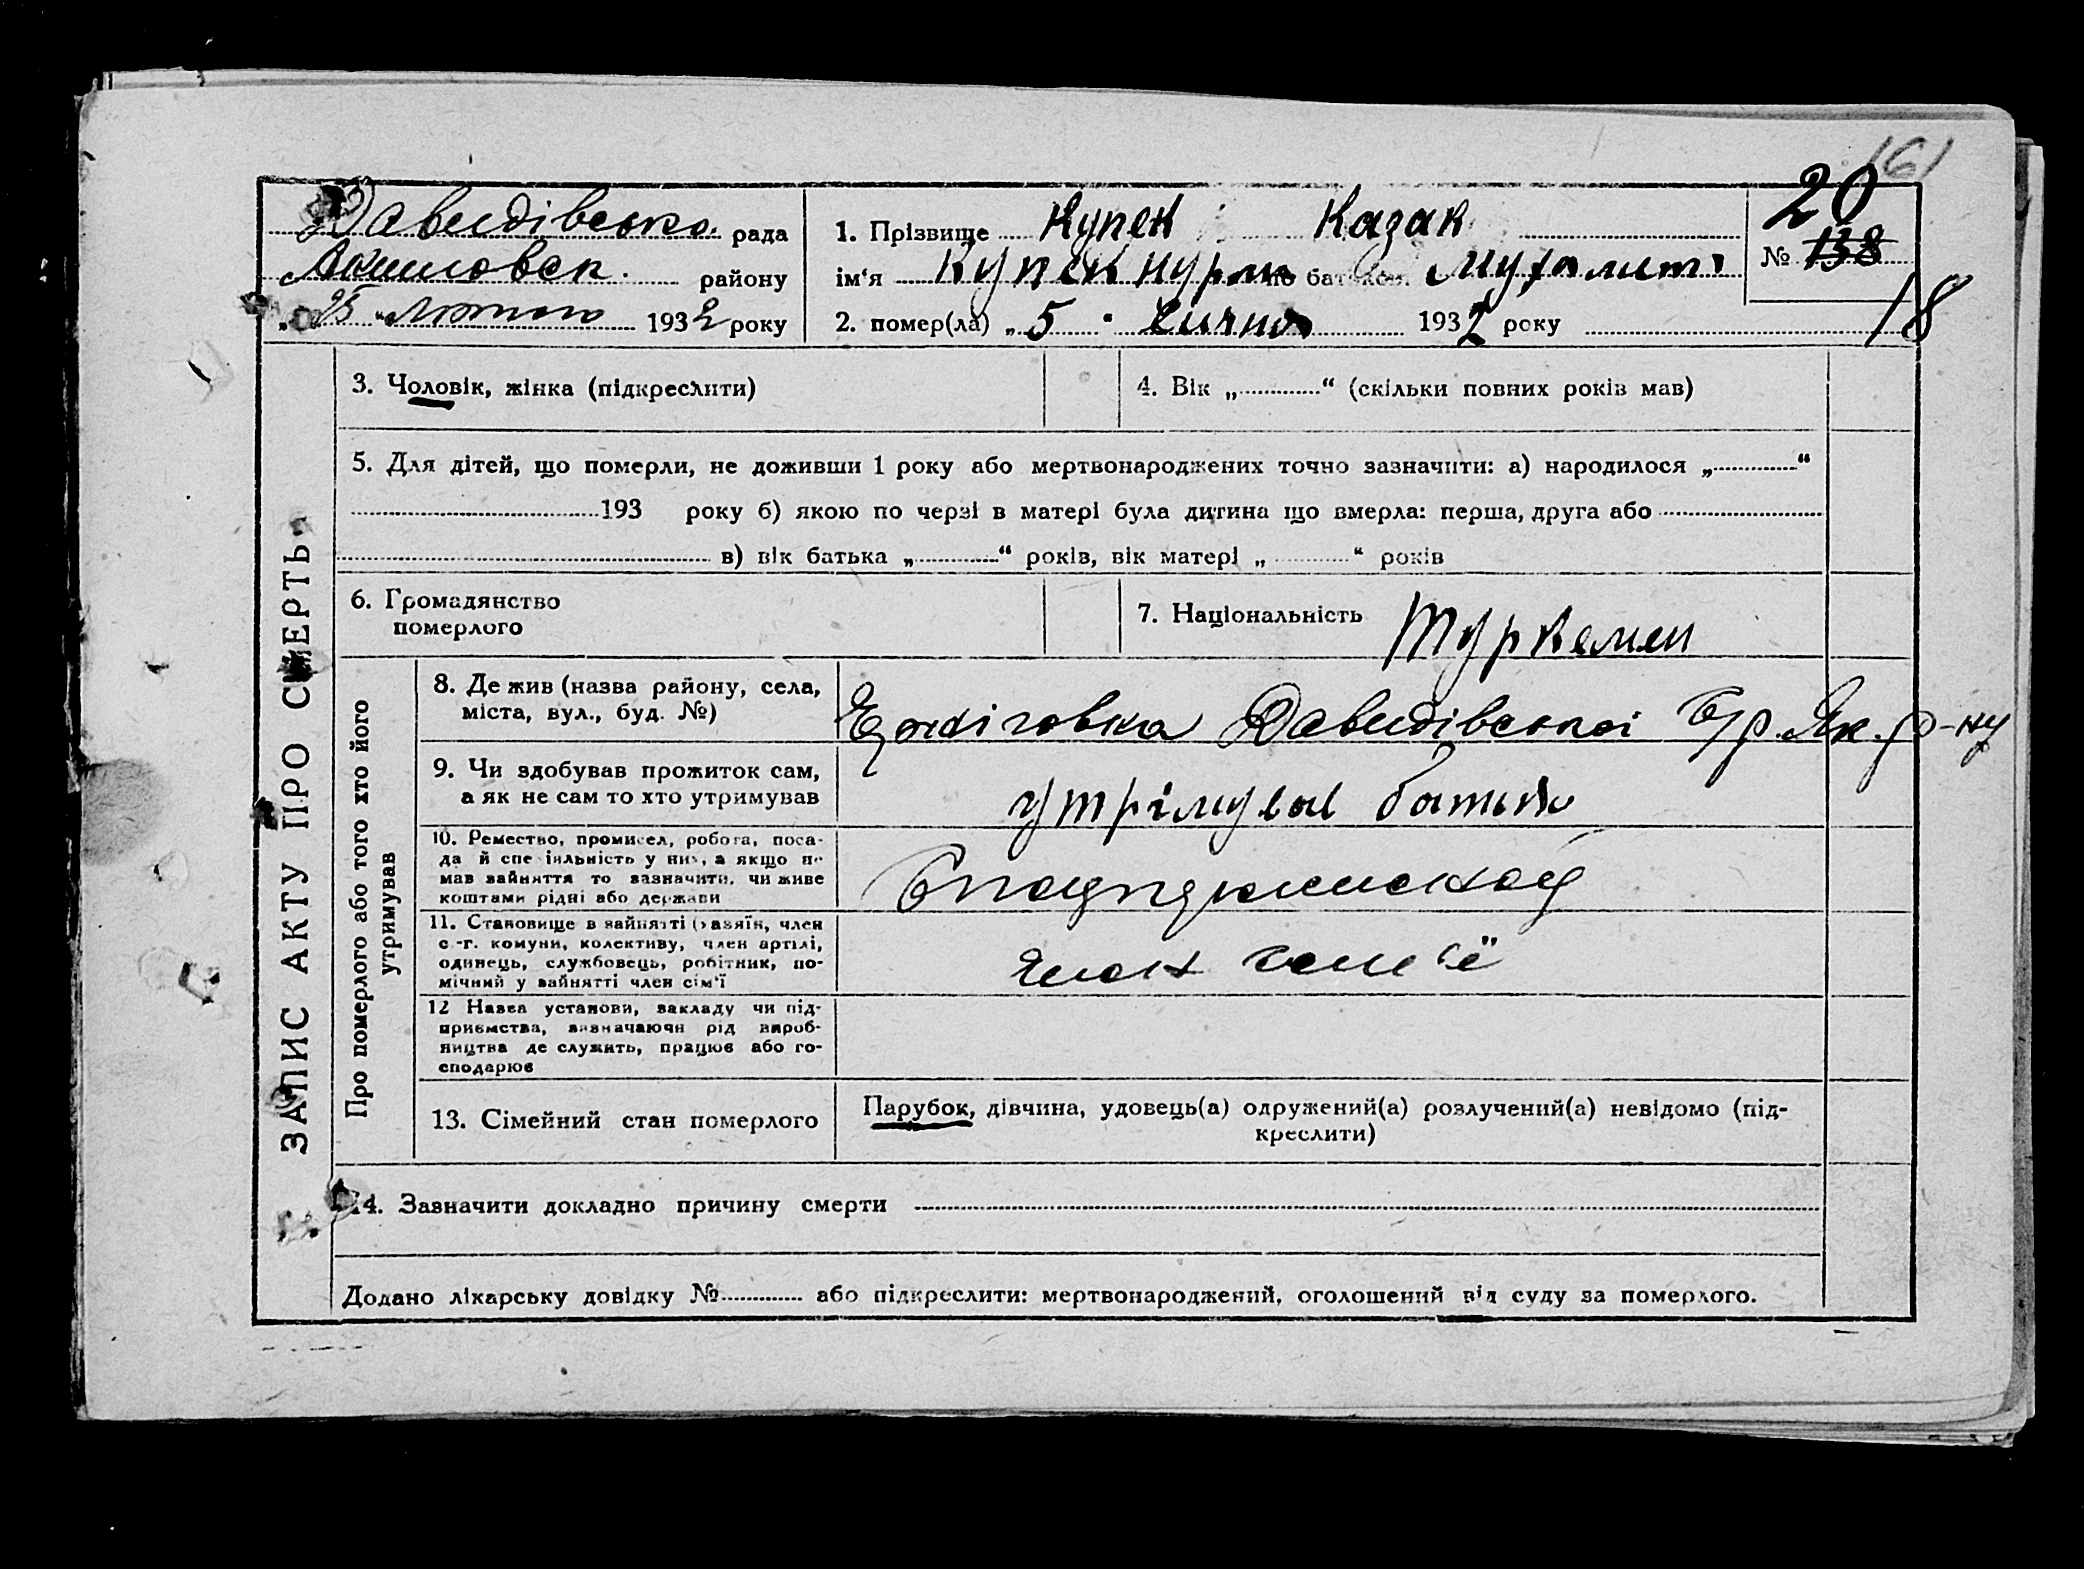 161
Давидівська рада
Акимовск. району
„25“ лютого 1932 року
1. Прізвище Купек Казак
ім‘я Купек по батькові
2. помер(ла) „5“ січня 1932 року
20
№ 138
18
ЗАПИС АКТУ ПРО СМЕРТЬ
3. Чоловік, жінка (підкреслити)
4. Вік „ “ (скільки повних років мав)
5. Для дітей, що померли, не доживши 1 року або мертвонароджених точно зазначити: а) народилося „ “
193 року б) якою по черзі в матері була дитина що вмерла: перша, друга або
в) вік батька „ “ років, вік матері „ “ років
6. Громадянство
померлого
7. Національність Туркмен
Про померлого або того хто його
утримував
8. Де жив (назва району, села,
міста, вул., буд. №)
Давидівської с/р. Як. р-ну
9. Чи здобував прожиток сам,
а як не сам то хто утримував
утрімував батько
10. Ремество, промисел, робота, поса-
да й спеціяльність у них, а якщо не
мав зайняття то зазначити, чи живе
коштами рідні або держави
11. Становище в зайнятті (хазяїн, член
с.-г. комуни, колективу, член артілі,
одинець, службовець, робітник, по-
мічний у зайнятті член сім‘ї
член сем‘ї
12 Назва установи, закладу чи під-
приємства, визначаючи рід вироб-
ництва де служить, працює або го-
сподарює
13. Сімейний стан померлого
Парубок, дівчина, удовець(а) одружений(а) розлучений(а) невідомо (під-
креслити)
14. Зазначити докладно причину смерти
Додано лікарську довідку № або підкреслити: мертвонароджений, оголошений від суду за померлого.